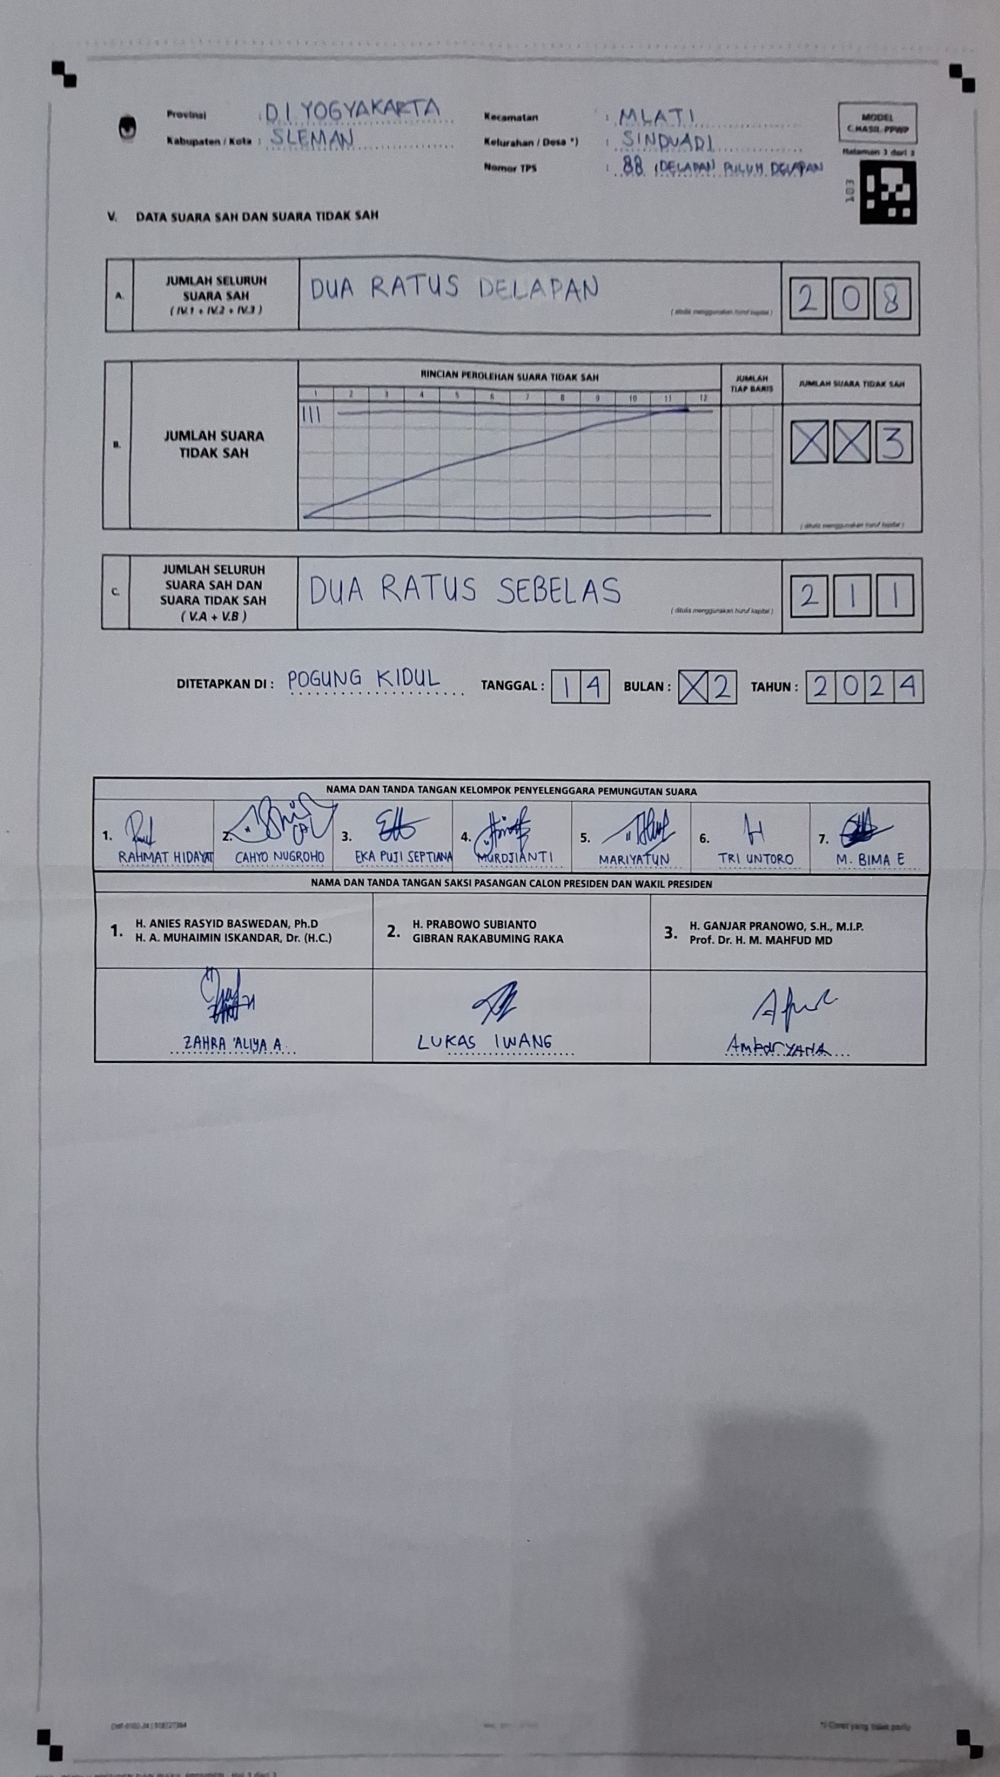 Provinsi : D.I. YOGYAKARTA
Kabupaten / Kota : SLEMAN
Kecamatan : MLATI
Kelurahan / Desa *) : SINDUADI
Nomor TPS : 88 (DELAPAN PULUH DELAPAN
MODEL
C.HASIL-PPWP
Halaman 3 dari 3
103
V. DATA SUARA SAH DAN SUARA TIDAK SAH
A. JUMLAH SELURUH SUARA SAH ( IV.1 + IV.2 + IV.3 )
DUA RATUS DELAPAN
( ditulis menggunakan huruf kapital )
2 0 8
B. JUMLAH SUARA TIDAK SAH
RINCIAN PEROLEHAN SUARA TIDAK SAH
1 2 3 4 5 6 7 8 9 10 11 12
III
JUMLAH TIAP BARIS
JUMLAH SUARA TIDAK SAH
X X 3
( ditulis menggunakan huruf kapital )
C. JUMLAH SELURUH SUARA SAH DAN SUARA TIDAK SAH ( V.A + V.B )
DUA RATUS SEBELAS
( ditulis menggunakan huruf kapital )
2 1 1
DITETAPKAN DI : POGUNG KIDUL TANGGAL : 14 BULAN : X2 TAHUN : 2024
NAMA DAN TANDA TANGAN KELOMPOK PENYELENGGARA PEMUNGUTAN SUARA
1. RAHMAT HIDAYAT
2. CAHYO NUGROHO
3. EKA PUJI SEPTIANA
4. MURDJIANTI
5. MARIYATUN
6. TRI UNTORO
7. M. BIMA E
NAMA DAN TANDA TANGAN SAKSI PASANGAN CALON PRESIDEN DAN WAKIL PRESIDEN
1. H. ANIES RASYID BASWEDAN, Ph.D
H. A. MUHAIMIN ISKANDAR, Dr. (H.C.)
2. H. PRABOWO SUBIANTO
GIBRAN RAKABUMING RAKA
3. H. GANJAR PRANOWO, S.H., M.I.P.
Prof. Dr. H. M. MAHFUD MD
ZAHRA 'ALIYA A
LUKAS IWANG
AmbarYANA
*) Coret yang tidak perlu